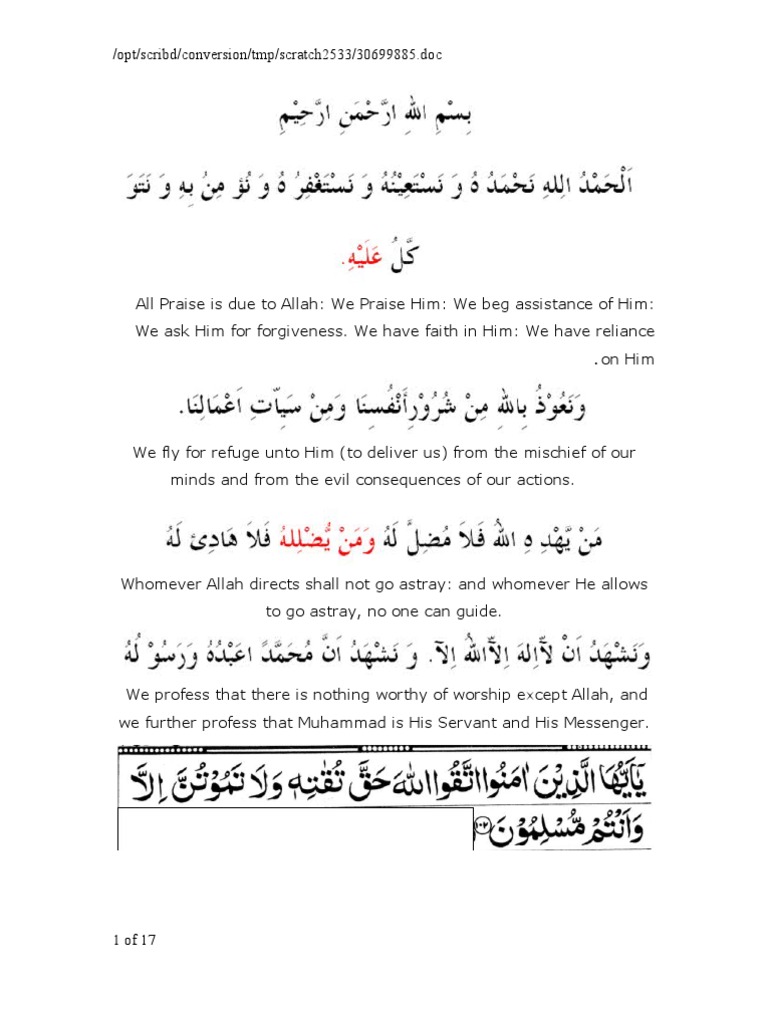 /opt/scribd/conversion/tmp/scratch2533/30699885.doc
بِسْمِ اللهِ ارَّحْمَنِ ارَّحِيْمِ
اَلْحَمْدُ اللِلهِ نَحْمَدُ هُ وَ نَسْتَعِيْنُهُ وَ نَسْتَغْفِرُ هُ وَ نُؤ مِنُ بِهِ وَ نَتَوَ
كَّلُ عَلَيْهِ.
All Praise is due to Allah: We Praise Him: We beg assistance of Him:
We ask Him for forgiveness. We have faith in Him: We have reliance
.on Him
وَنَعُوْذُ بِاللهِ مِنْ شُرُوْرِأَنْفُسِنَا وَمِنْ سَيِاّتِ اَعْمَالِنَا.
We fly for refuge unto Him (to deliver us) from the mischief of our
minds and from the evil consequences of our actions.
مَنْ يَّهْدِ هِ اللهُ فَلاَ مُضِلَّ لَهُ وَمَنْ يُّضْلِلهُ فَلاَ هَادِىَ لَهُ
Whomever Allah directs shall not go astray: and whomever He allows
to go astray, no one can guide.
وَنَشْهَدُ اَنْ لآَّاِلهَ اِلاَّاللهُ اِلآَ. وَ نَشْهَدُ اَنَّ مُحَمَّدً اعَبْدُهُ وَرَسُوْ لُهُ
We profess that there is nothing worthy of worship except Allah, and
we further profess that Muhammad is His Servant and His Messenger.
يٰۤاَيُّهَا الَّذِيْنَ اٰمَنُوا اتَّقُوا اللهَ حَقَّ تُقٰتِهٖ وَلَا تَمُوْتُنَّ اِلَّا
وَاَنْتُمْ مُّسْلِمُوْنَ ١٠٢
1 of 17